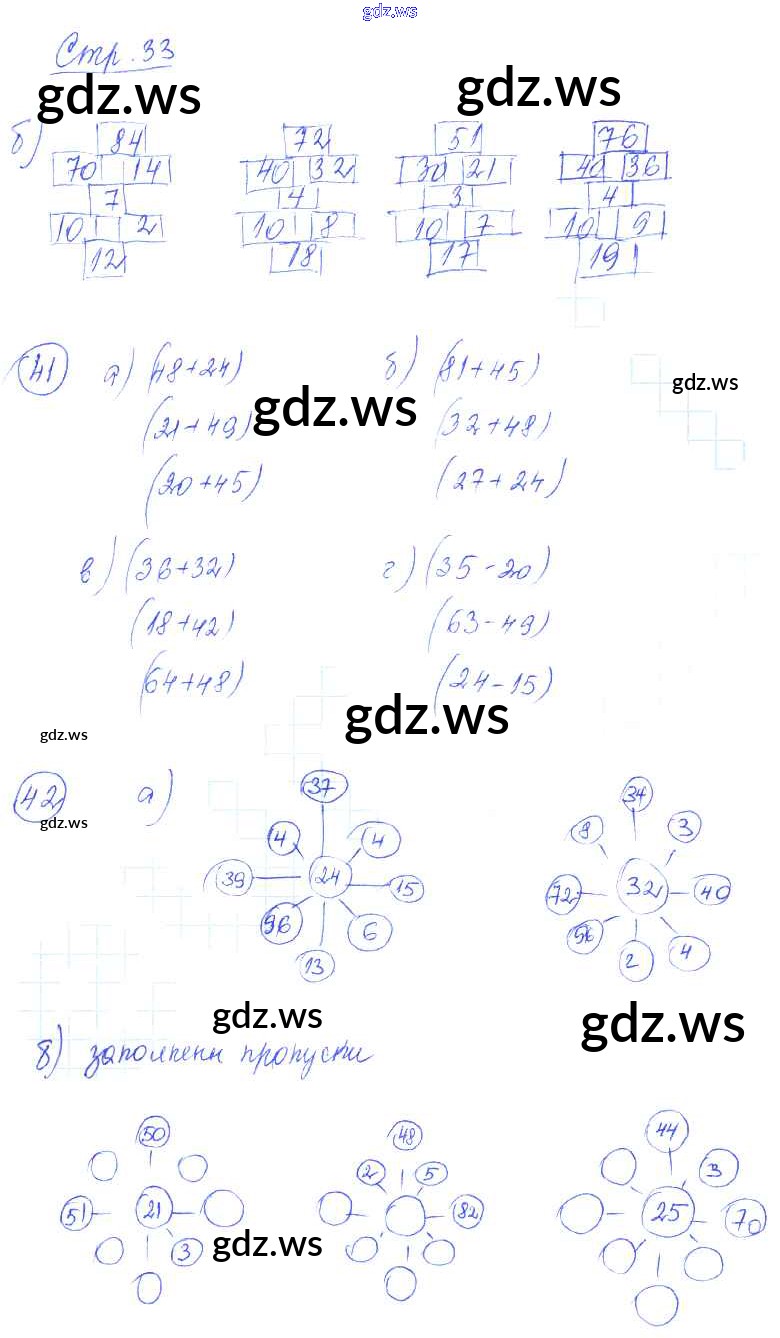 gdz.ws
Стр. 33
gdz.ws gdz.ws
б) 84 72 51 76
70 14 40 32 30 21 40 36
7 4 3 4
10 2 10 8 10 7 10 9
12 18 17 19
41 а) (48+24) б) (81+45)
gdz.ws
(21+49) gdz.ws (32+48)
(20+45) (27+24)
в) (36+32) г) (35-20)
(18+42) (63-49)
(64+48) (24-15)
gdz.ws gdz.ws
42 а) 37 34
gdz.ws
4 4 8 3
39 24 15 72 32 40
96 6 96 4
13 2
gdz.ws gdz.ws
б) заполнены пропуски
50 48 44
2 5 3
51 21 82 25 70
3 gdz.ws